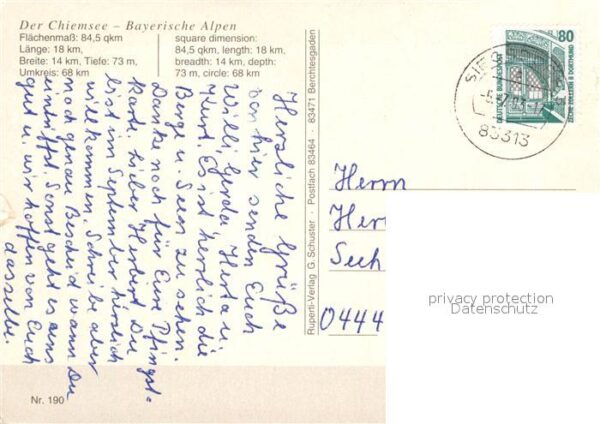 Der Chiemsee – Bayerische Alpen
Flächenmaß: 84,5 qkm
Länge: 18 km,
Breite: 14 km, Tiefe: 73 m,
Umkreis: 68 km
square dimension:
84,5 qkm, length: 18 km,
breadth: 14 km, depth:
73 m, circle: 68 km
Herzliche Grüße
von hier senden Euch
Willi, Gerda, Herta u.
Kurt. Es ist herrlich die
Berge u. Seen zu sehen.
Danke noch für Eure Pfingst-
karte. Lieber Herbert Du
bist im September herzlich
willkommen. Schreibe aber
noch genau Bescheid wann Du
eintriffst. Sonst geht es uns
gut u. wir hoffen von Euch
dasselbe.
Nr. 190
Ruperti-Verlag G. Schuster · Postfach 83464 · 83471 Berchtesgaden
80
DEUTSCHE BUNDESPOST
ZECHE ZOLLERN II DORTMUND
83313
Herrn
Her
Sech
0444
privacy protection
Datenschutz